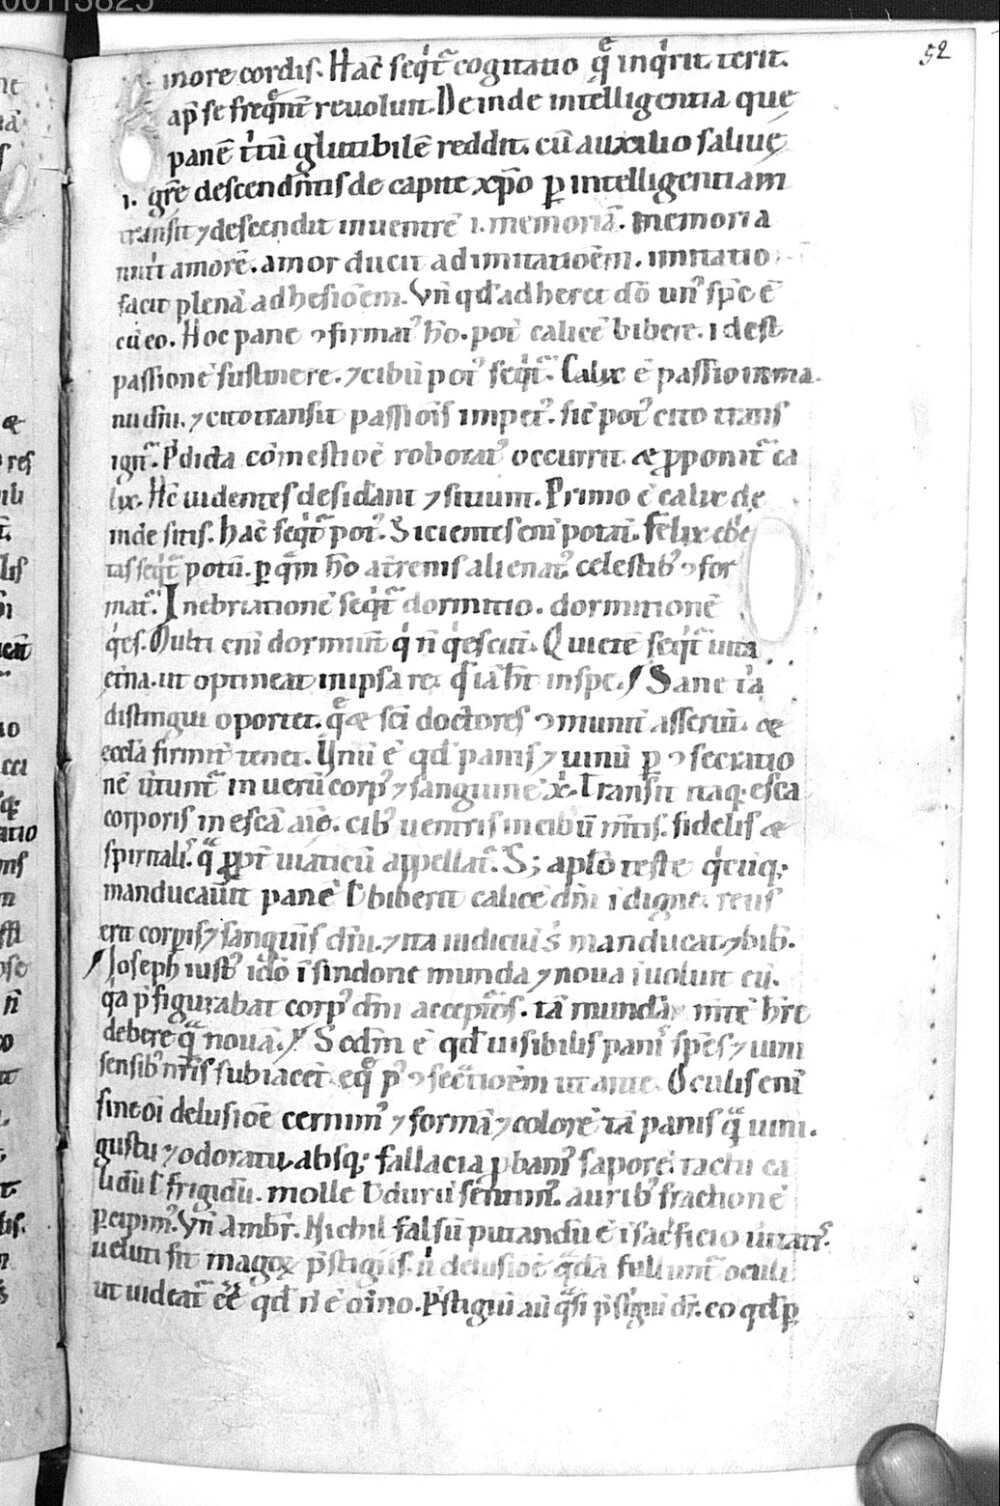 52
more cordis. Hac̄ seq͛t̄ cogitatio q̄ inq͛rit. terit.
ap̄ se freq̄nt̄ reuoluit. Deinde intelligentia quę
panē t͛tū glutibilē reddit. cū auxilio saliuę
.i. gr̄e descendn̄tis de capite xp̄o p̱ intelligentiam
transit ⁊ descendit in uentrē .i. memoriā. memoria
nut͛t amorē. amor ducit ad imitatioēm. imitatio
facit plenā adhesioēm. Vn̄ qd̓ adheret dō un᷒ sp̄c ē
cū eo. Hoc pane ꝯfirmat᷒ hō. pot͛ calicē bibere. idest
passionē sustinere. ⁊ cibū pot᷒ seq͛t᷒. Calix ē passio in ma
nu dn̄i. ⁊ cito transit passiōis impet᷒. sic̄ pot᷒ cito trans
Pᷓdicta comestioē roborat᷒ occurrit. & ꝓponit᷒ ca
lix. Hc̄ uidentes desid͛ant ⁊ sitiunt. Primo ē calix de
inde sitis. hac̄ seq͛t᷒ pot᷒. Sicientes eni potat͛. Felix eb͛e
tas seq͛t᷒ potū. p̱ qᷓm hō at͛renis alienat᷒ celestib᷒ ꝯfor
mat᷒. Inebriationē seq͛t᷒ dormitio. dormitionē
q͛es. Multi eni dormiūt q͛ n̄ q͛escūt. Quietē seq͛t᷒ uita
et͛na. ut optineat in ipsa re. qd̓ iā hr̄t in spe. Sane iā
distingui oportet. q̄ & sc̄i doctores ꝯmunit͛ asserūt. &
eccl̄a firmit͛ tenet. Vnū ē qd̓ panis ⁊ uinū p̱ ꝯsecratio
nē u͛tunt᷒ in uerū corp᷒ ⁊ sanguinē x͛. Transit itaq; esca
corporis in escā aīe. cib᷒ uentris in cibū mn̄tis. fidelis &
spiritalis. qᷓ ꝓpt͛ uiaticū appellat᷒. S; ap̄lo teste q͛cūq;
manducau͛it panē ł biberit calicē dn̄i idigne. reus
erit corpis ⁊ sanguīs dn̄i. ⁊ ita iudiciū s͛ manducat. ⁊ bib͛.
Joseph iust᷒ id͛o ī sindone munda ⁊ noua īuoluit eū.
q͛a p̄figurabat corp᷒ dn̄i acceptos. tā mundā mn̄tē hr̄e
debere qᷓ nouā. Scd̄m ē qd̓ uisibilis panī sp̄es ⁊ uini
sensib᷒ nr̄is subiacet. eq̄ p᷒ ꝯsec͛tioēm ut ante. Oculis eni
sine oī delusioē cernim᷒ ⁊ formā ⁊ colorē tā panis qᷓ uini.
gustu ⁊ odoratu. absq; fallacia ꝓbam᷒ saporē. tactu ca
lidū ł frigidū. molle ł durū sentim᷒. aurib᷒ fractionē
p̱cipim᷒. Vn̄ Ambr̄. Nichil falsū putandū ē ī sac͛ficio u͛itatis.
ueluti fit magoꝝ p̄stigiis. u͛ delusioē qᷓdā fallunt᷒ oculi
ut uideat᷒ eē qd̓ n̄ ē oīno. P̄stigiū aū qᷓsi p̄st͛giū dr̄. eo qd̓ p̱